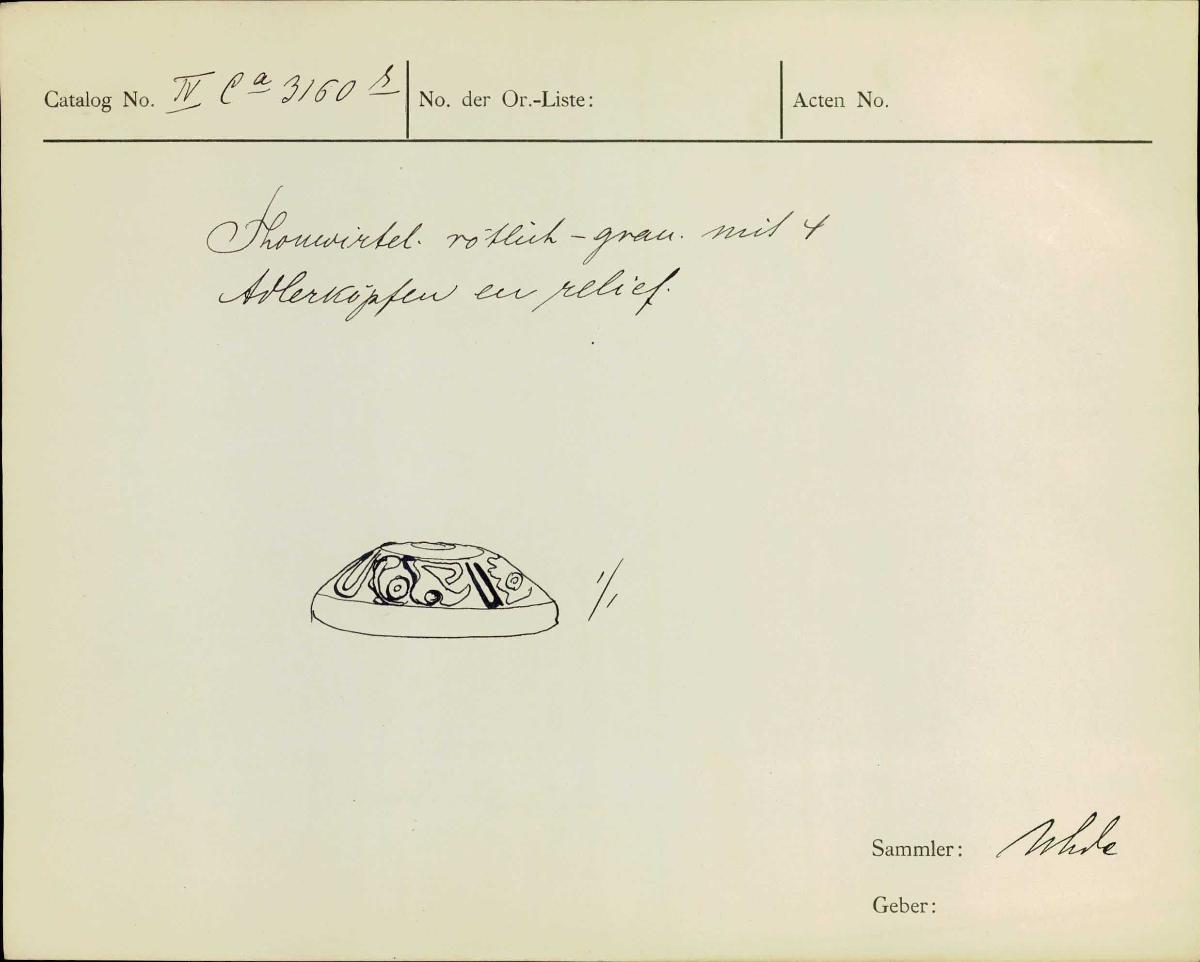 Catalog No. IV Ca 3160
No. der Or.-Liste:
Acten No.
Thonwirtel. rötlich - grau. mit 4
Adlerköpfen en relief.
1/1
Sammler: Uhde
Geber: